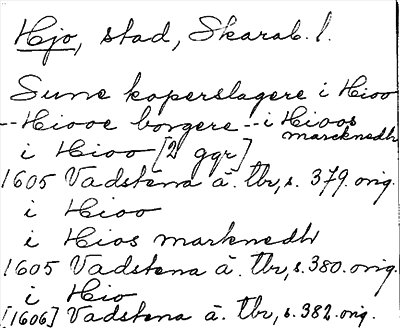 Hjo, stad, Skarab. l.
Sume koperslagere i Hioo
-- Hiooe borgere -- i Hioos
marcknedh
i Hioo [2 ggr]
1605 Vadstena ä. tbr, s. 379. orig.
i Hioo
i Hios marknedh
1605 Vadstena ä. tbr, s. 380. orig.
i Hio
[1606] Vadstena ä. tbr, s. 382. orig.